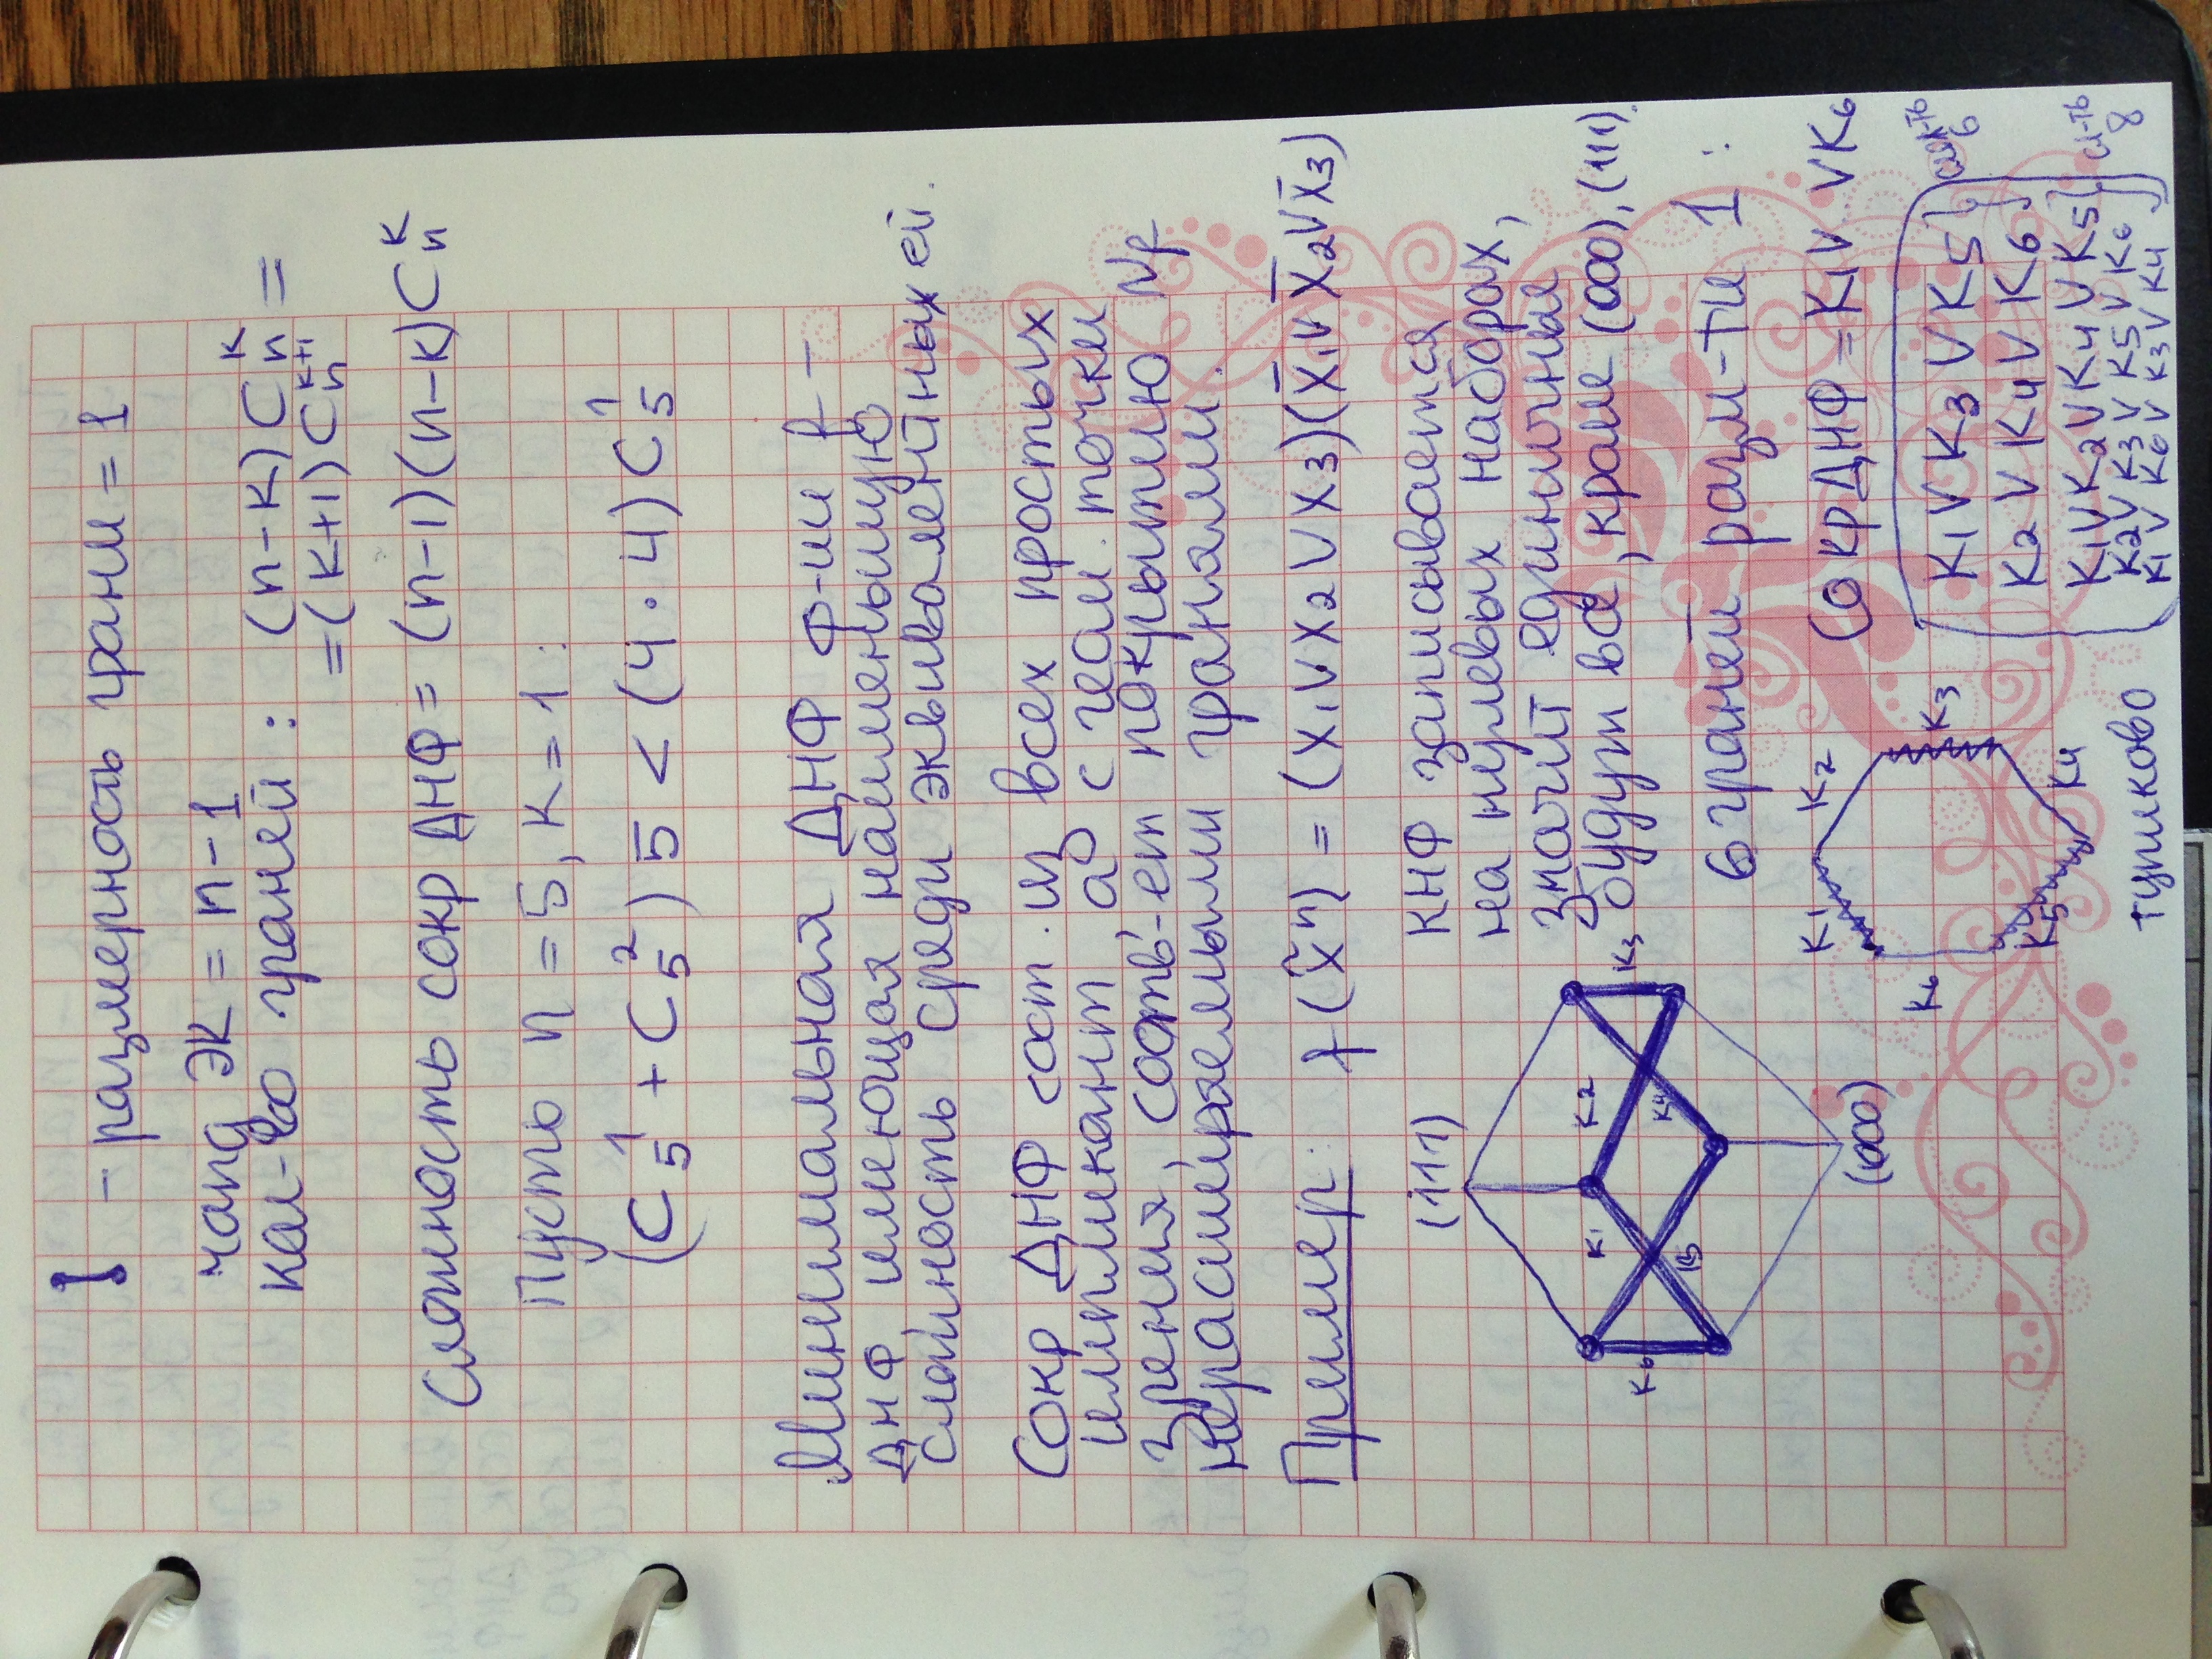 – размерность грани = 1
ранг ЭК = n – 1
кол-во граней: (n-k) C_n^k =
= (k+1) C_n^{k+1}
Сложность сокр ДНФ = (n-1)(n-k) C_n^k
Пусть n = 5, k = 1:
(C_5^1 + C_5^2) 5 < (4·4) C_5^1
Минимальная ДНФ ф-ии f –
ДНФ имеющая наименьшую
сложность среди эквивалентных ей.
Сокр ДНФ сост. из всех простых
импликант, а с геом. точки
зрения, соотв-ет покрытию Nf
нерасширяемыми гранями.
Пример: f(x̃ⁿ) = (x₁ ∨ x₂ ∨ x₃)(x̄₁ ∨ x̄₂ ∨ x̄₃)
КНФ записывается
на нулевых наборах,
значит единичные
будут все, кроме (000), (111).
6 граней разм-ти 1:
(111)
K1
K2
K3
K4
K5
K6
(000)
Сокр ДНФ = K1 ∨ ∨ K6
K1
K2
K3
K4
K5
K6
тупиково
K1 ∨ K3 ∨ K5 } сл-ть 6
K2 ∨ K4 ∨ K6
K1 ∨ K2 ∨ K4 ∨ K5 } сл-ть 8
K2 ∨ K3 ∨ K5 ∨ K6
K1 ∨ K6 ∨ K3 ∨ K4